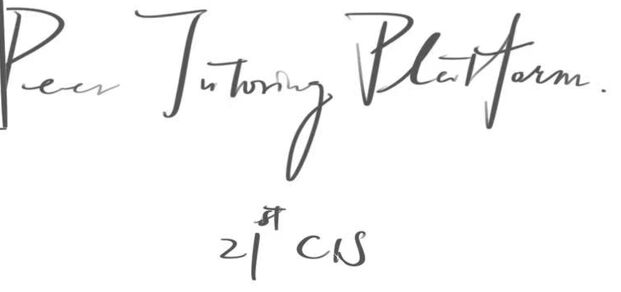 Peer Tutoring Platform.
21st CNS